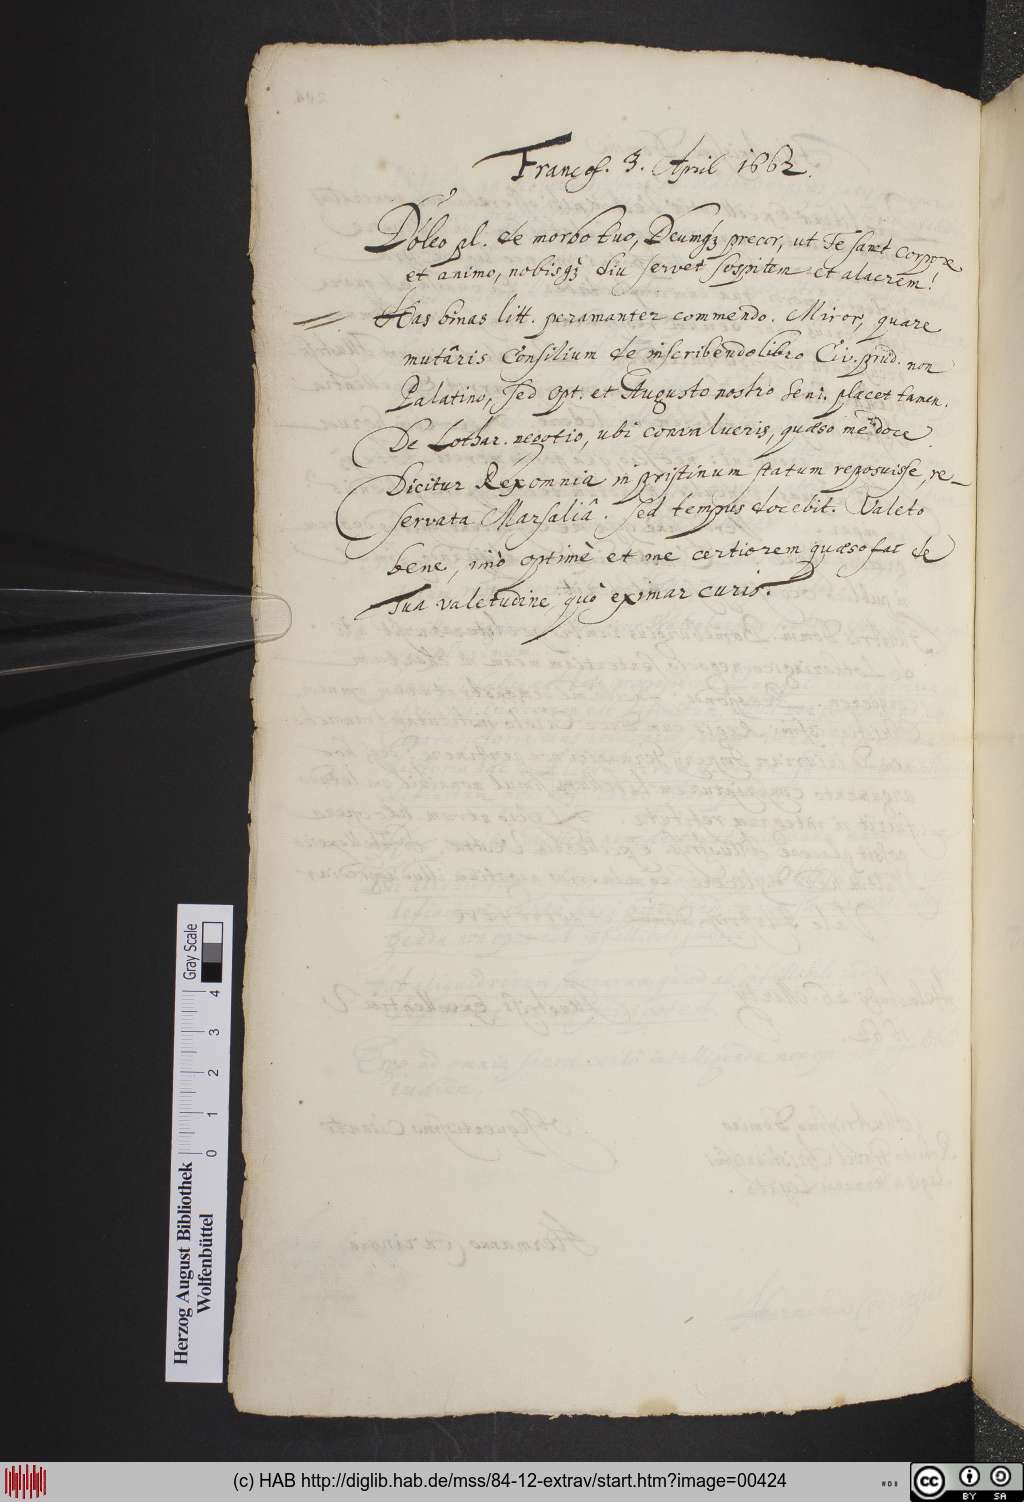 Francof. 3. April 1662.
Doleo pl. de morbo tuo, Deumq; precor, ut Te sanet corpore
et animo, nobisq; diu servet sospitem et alacrem!
Has binas litt. peramanter commendo. Miror, quare
mutâris Consilium de inscribendo libro Civ. prud. non
Palatino, sed opt. et Augusto nostro Seni. placet tamen.
De Lothar. negotio, ubi convalueris, quæso me doce
Dicitur Rex omnia in pristinum statum reposuisse, re-
servata Marsaliâ. Sed tempus docebit. Valeto
bene, imò optimè et me certiorem quæso fac de
Tua valetudine, quò eximar curis.
Gray Scale
0 1 2 3 4
Herzog August Bibliothek
Wolfenbüttel
(c) HAB http://diglib.hab.de/mss/84-12-extrav/start.htm?image=00424
cc BY SA